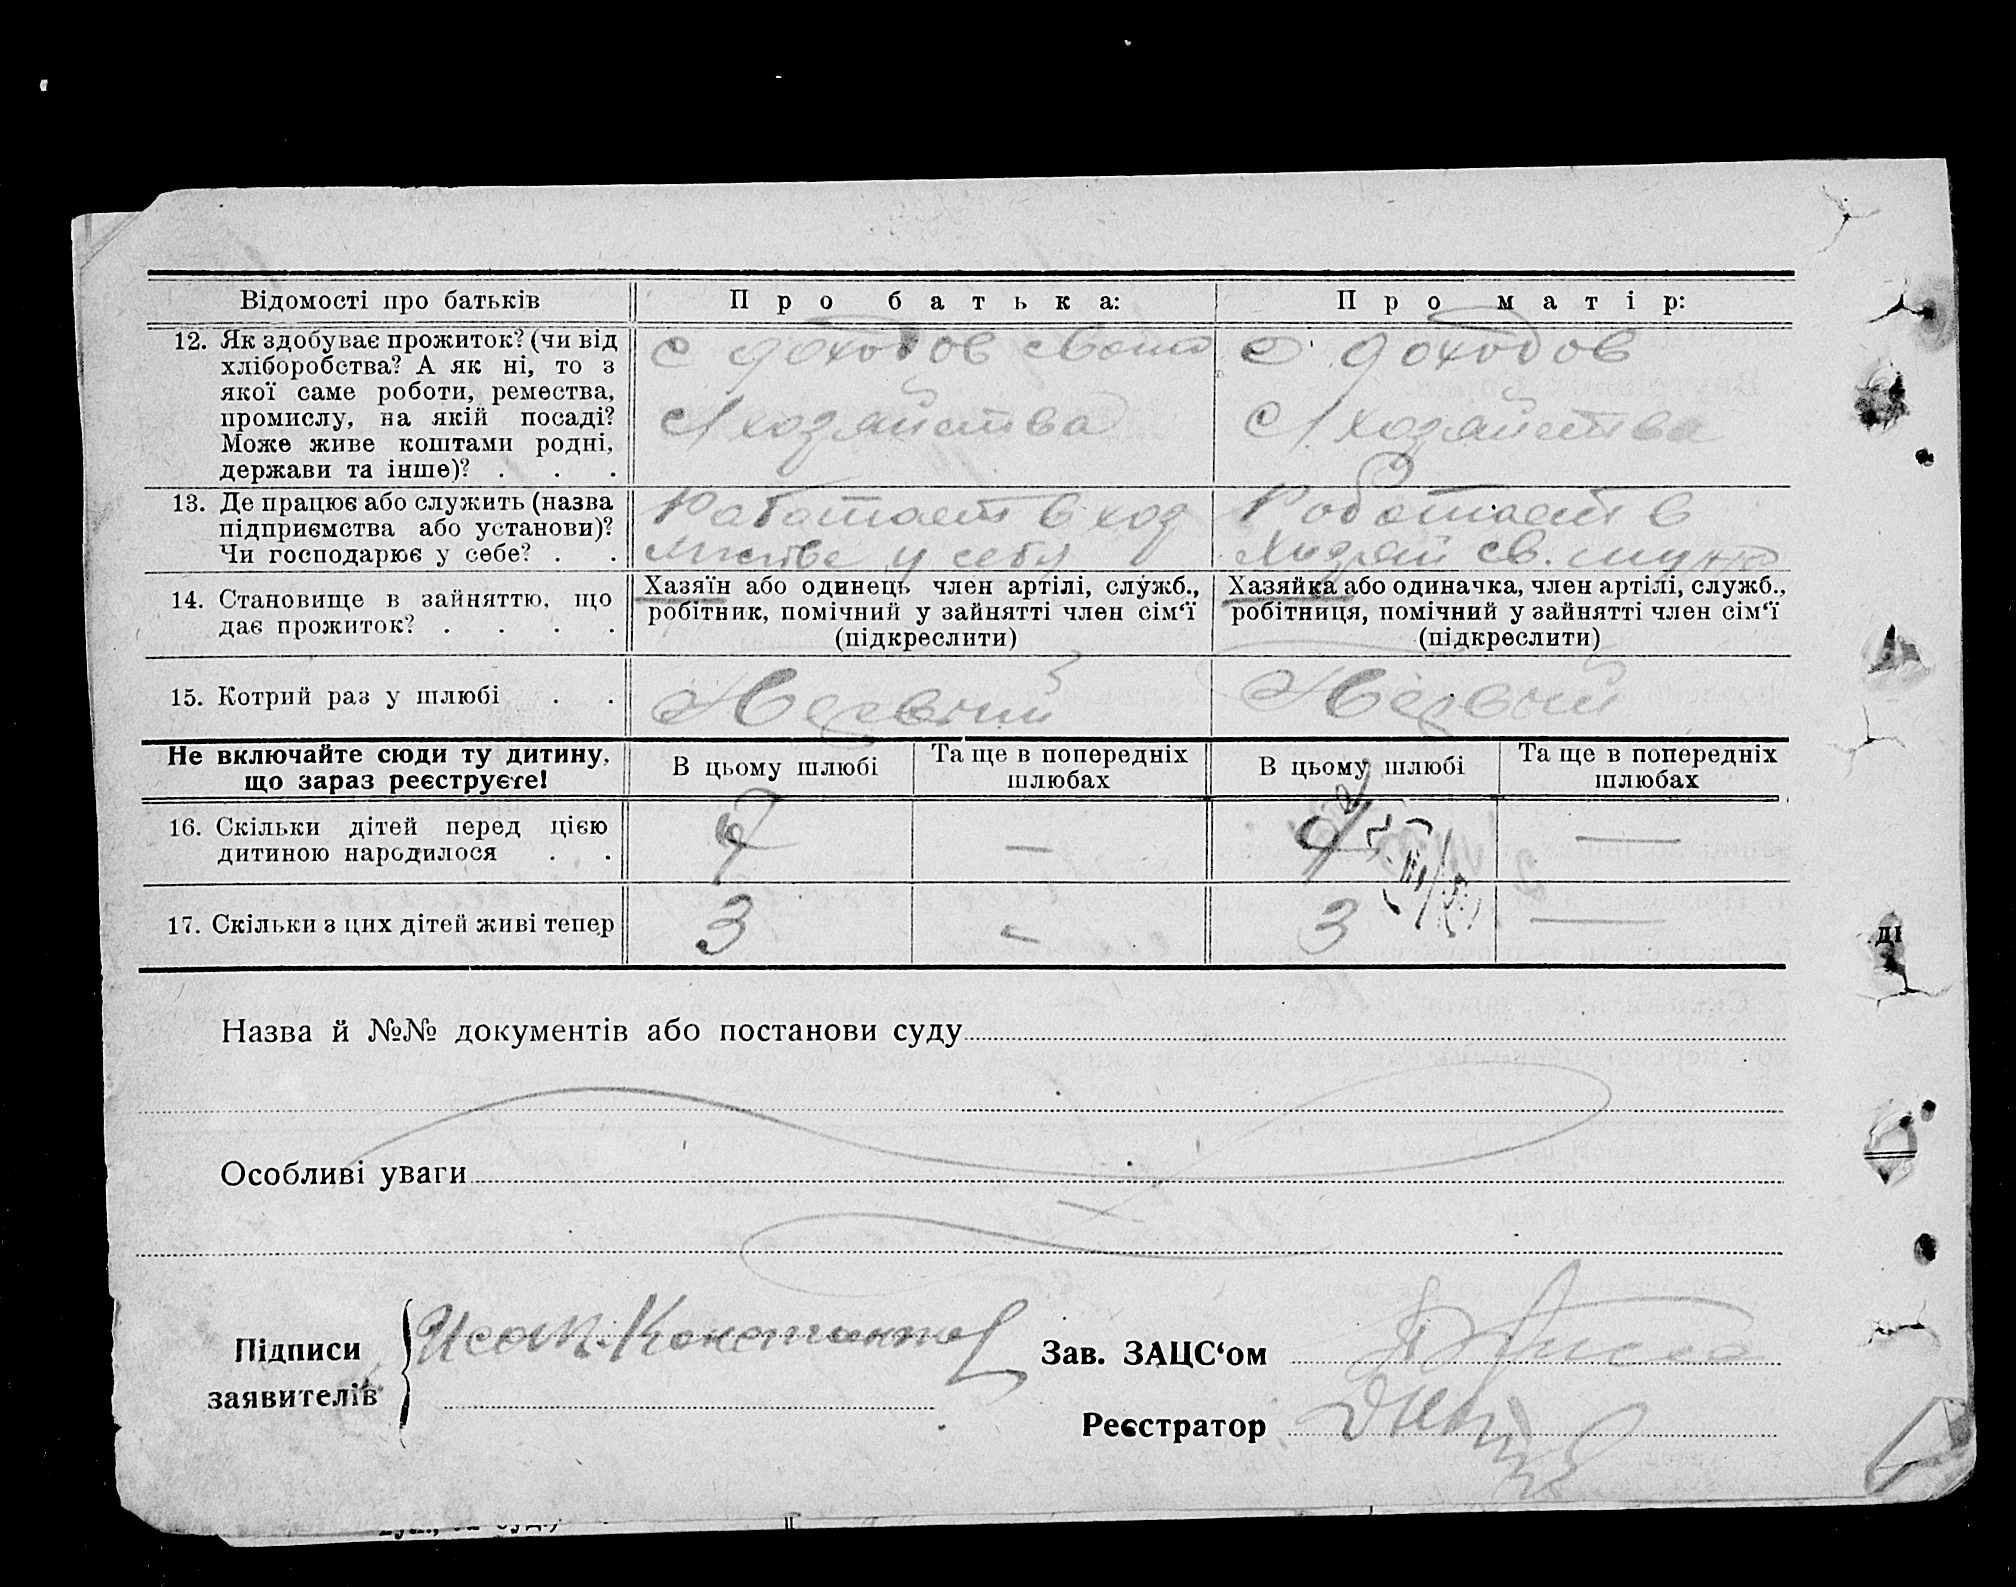 Відомості про батьків
Про батька:
Про матір:
12. Як здобуває прожиток? (чи від
хліборобства? А як ні, то з
якої саме роботи, ремества,
промислу, на якій посаді?
Може живе коштами родні,
держави та інше)? . . .
с доходов своего
с/хозяйства
с доходов
с/хозяйства
13. Де працює або служить (назва
підприємства або установи)?
Чи господарює у себе? . .
Работает в хоз
яйстве у себя
Работает в
св.
14. Становище в зайняттю, що
дає прожиток? . . . .
Хазяїн або одинець, член артілі, служб.,
робітник, помічний у зайнятті член сім‘ї
(підкреслити)
Хазяйка або одиначка, член артілі, служб.,
робітниця, помічний у зайнятті член сім‘ї
(підкреслити)
15. Котрий раз у шлюбі . .
Первый
Первый
Не включайте сюди ту дитину,
що зараз реєструєте!
В цьому шлюбі
Та ще в попередніх
шлюбах
В цьому шлюбі
Та ще в попередніх
шлюбах
16. Скільки дітей перед цією
дитиною народилося . .
—
—
17. Скільки з цих дітей живі тепер
3
-
3
—
ді
Назва й №№ документів або постанови суду
Особливі уваги
Підписи
заявителів
Исак. Константинов
Зав. ЗАЦС‘ом
Реєстратор